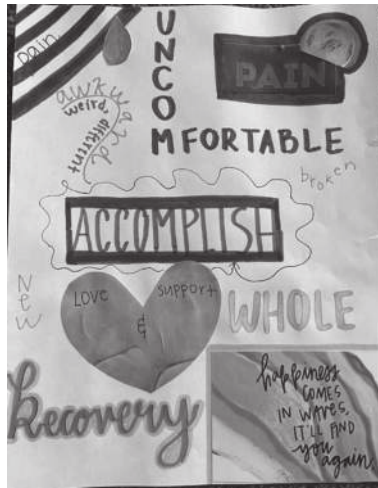 pain.
UNCOMFORTABLE
PAIN
awkward
weird,
different
broken
ACCOMPLISH
New
Love
&
support
WHOLE
Recovery
happiness
COMES
IN WAVES,
IT'LL FIND
you
again.